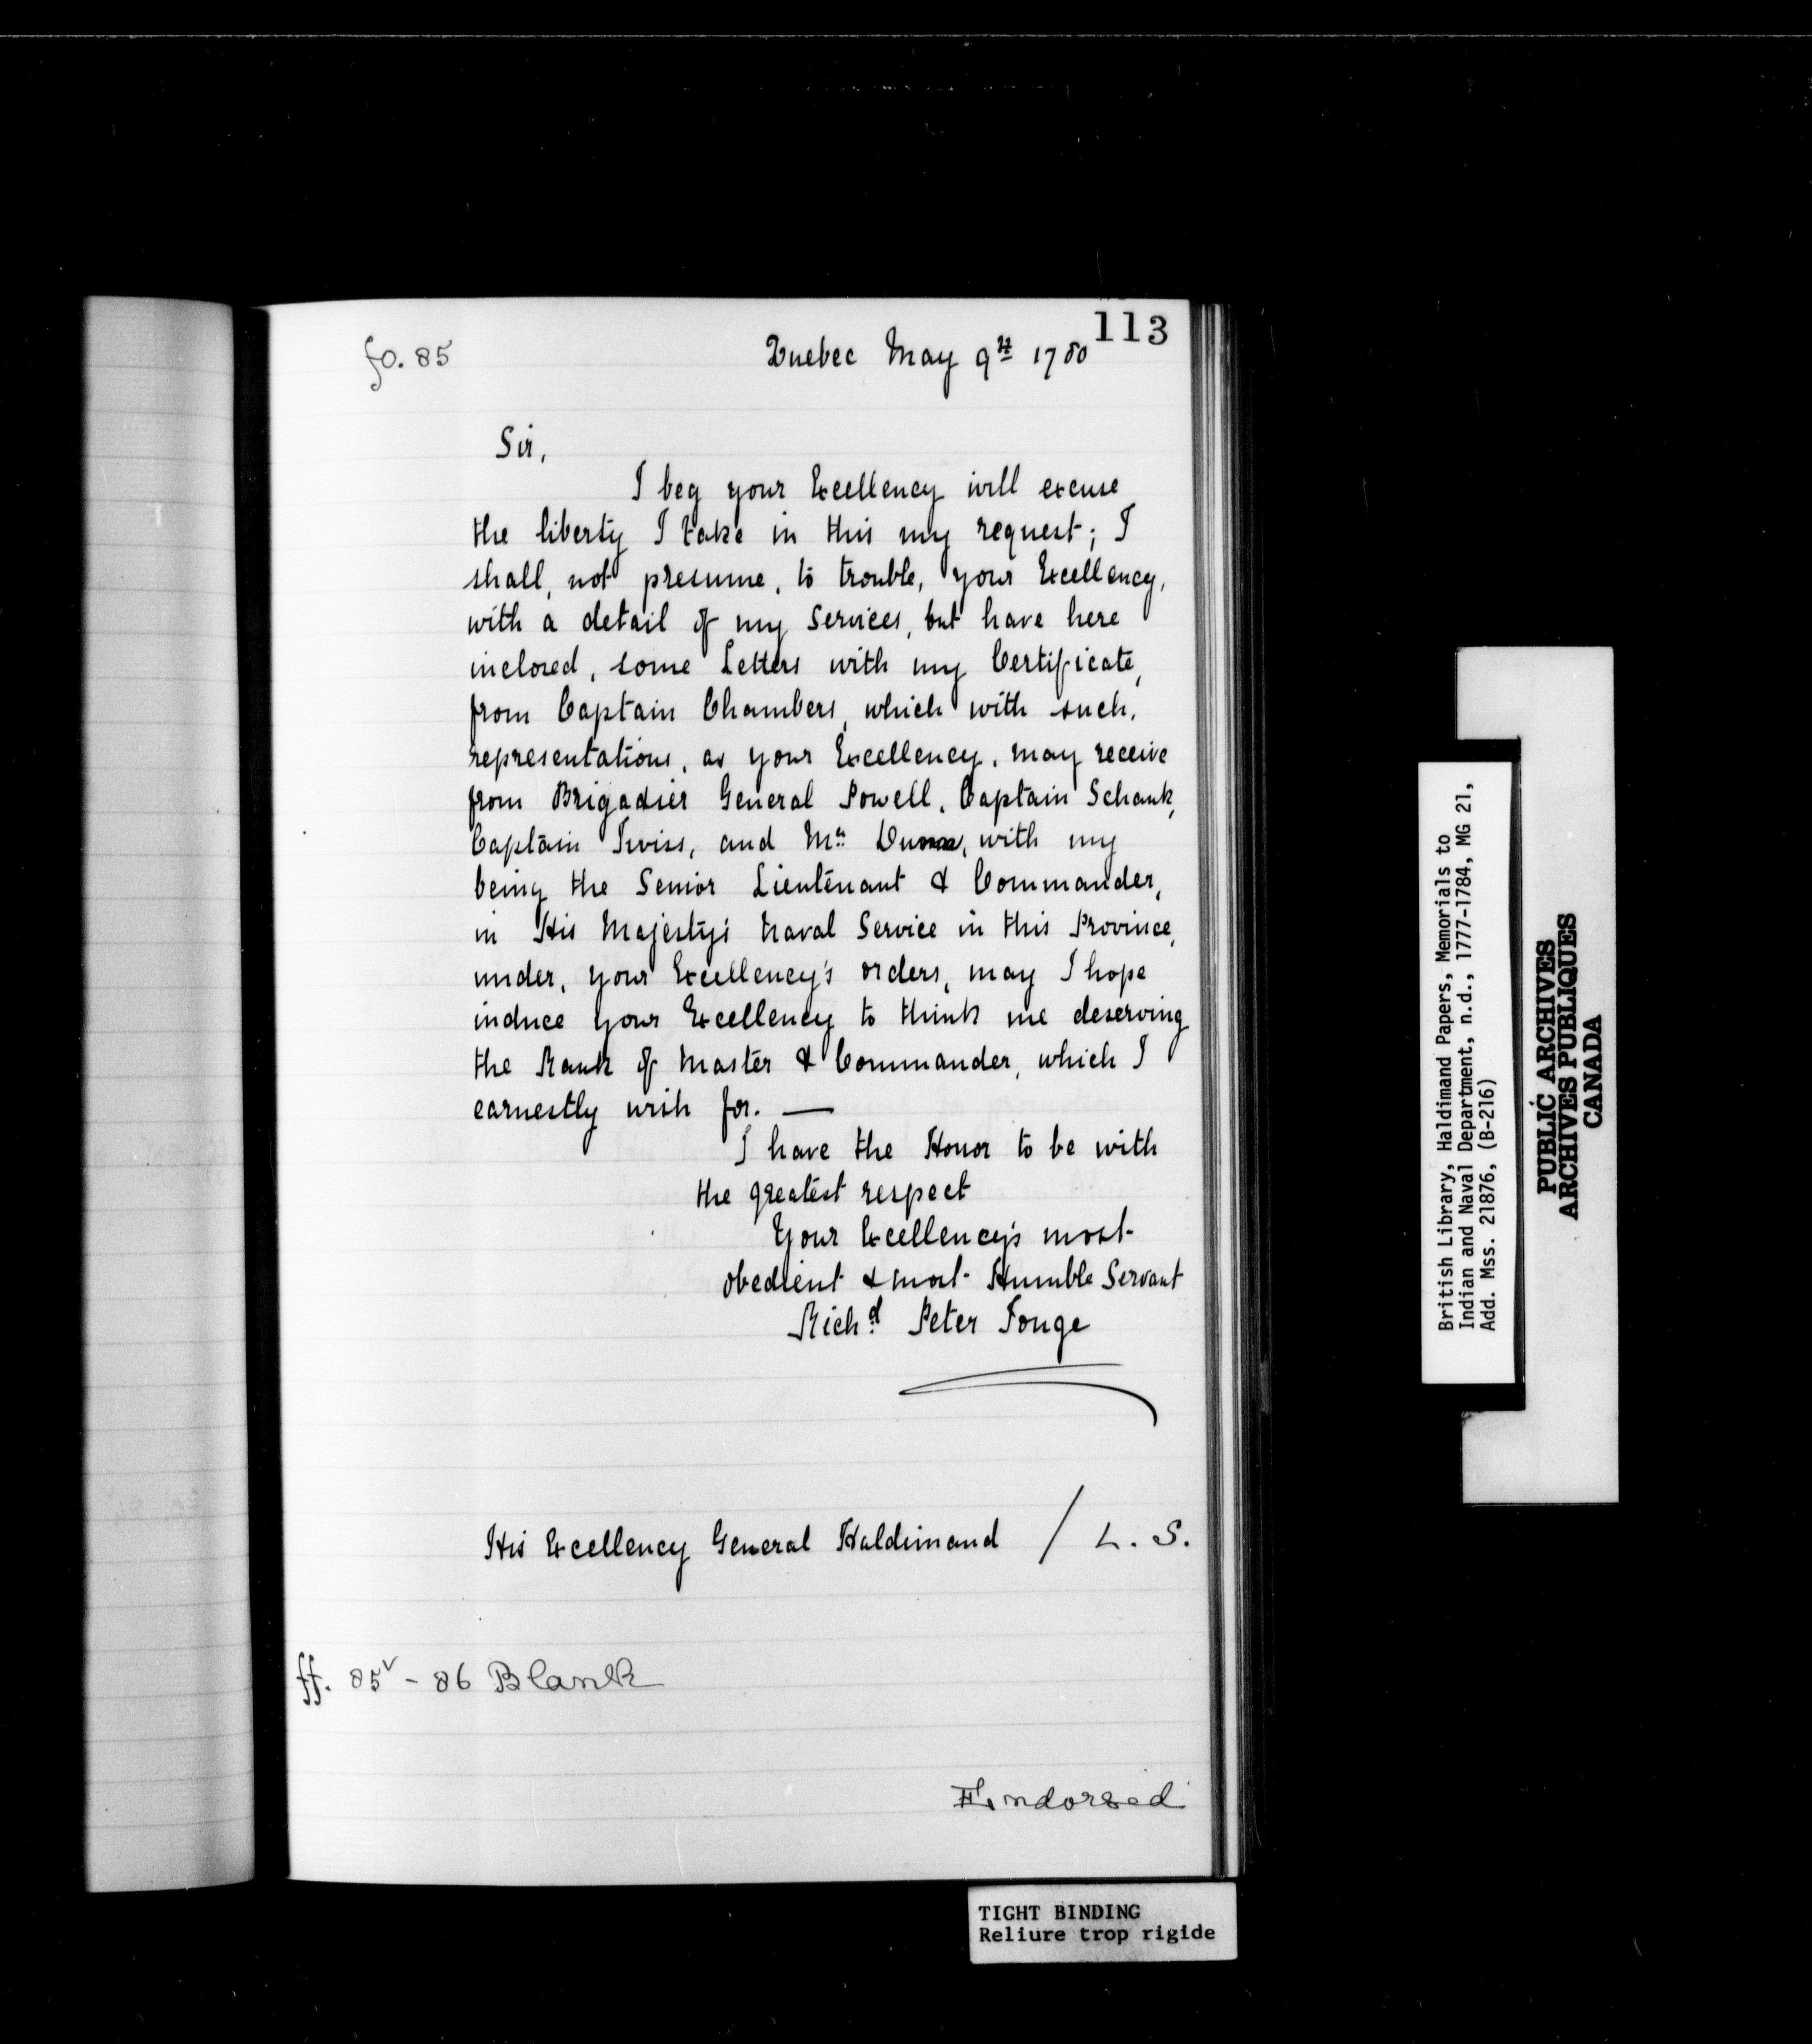 113
fo. 85
Quebec May 9th 1780
Sir,
I beg your Excellency will excuse
the liberty I take in this my request; I
shall, not presume, to trouble, your Excellency,
with a detail of my Services, but have here
inclosed, some Letters with my Certificate,
from Captain Chambers, which with such,
representations, as your Excellency, may receive
from Brigadier General Powell, Captain Schank,
Captain Twiss, and Mr Dunn, with my
being the Senior Lieutenant & Commander,
in His Majesty's Naval Service in this Province,
under, your Excellency's orders, may I hope
induce your Excellency to think me deserving
the Rank of Master & Commander, which I
earnestly wish for. —
I have the Honor to be with
the greatest respect
Your Excellency's most
obedient & most Humble Servant
Richd Peter Touge
His Excellency General Haldimand / L. S.
ff. 85v - 86 Blank
Endorsed
TIGHT BINDING
Reliure trop rigide
British Library, Haldimand Papers, Memorials to
Indian and Naval Department, n.d., 1777-1784, MG 21,
Add. Mss. 21876, (B-216)
PUBLIC ARCHIVES
ARCHIVES PUBLIQUES
CANADA